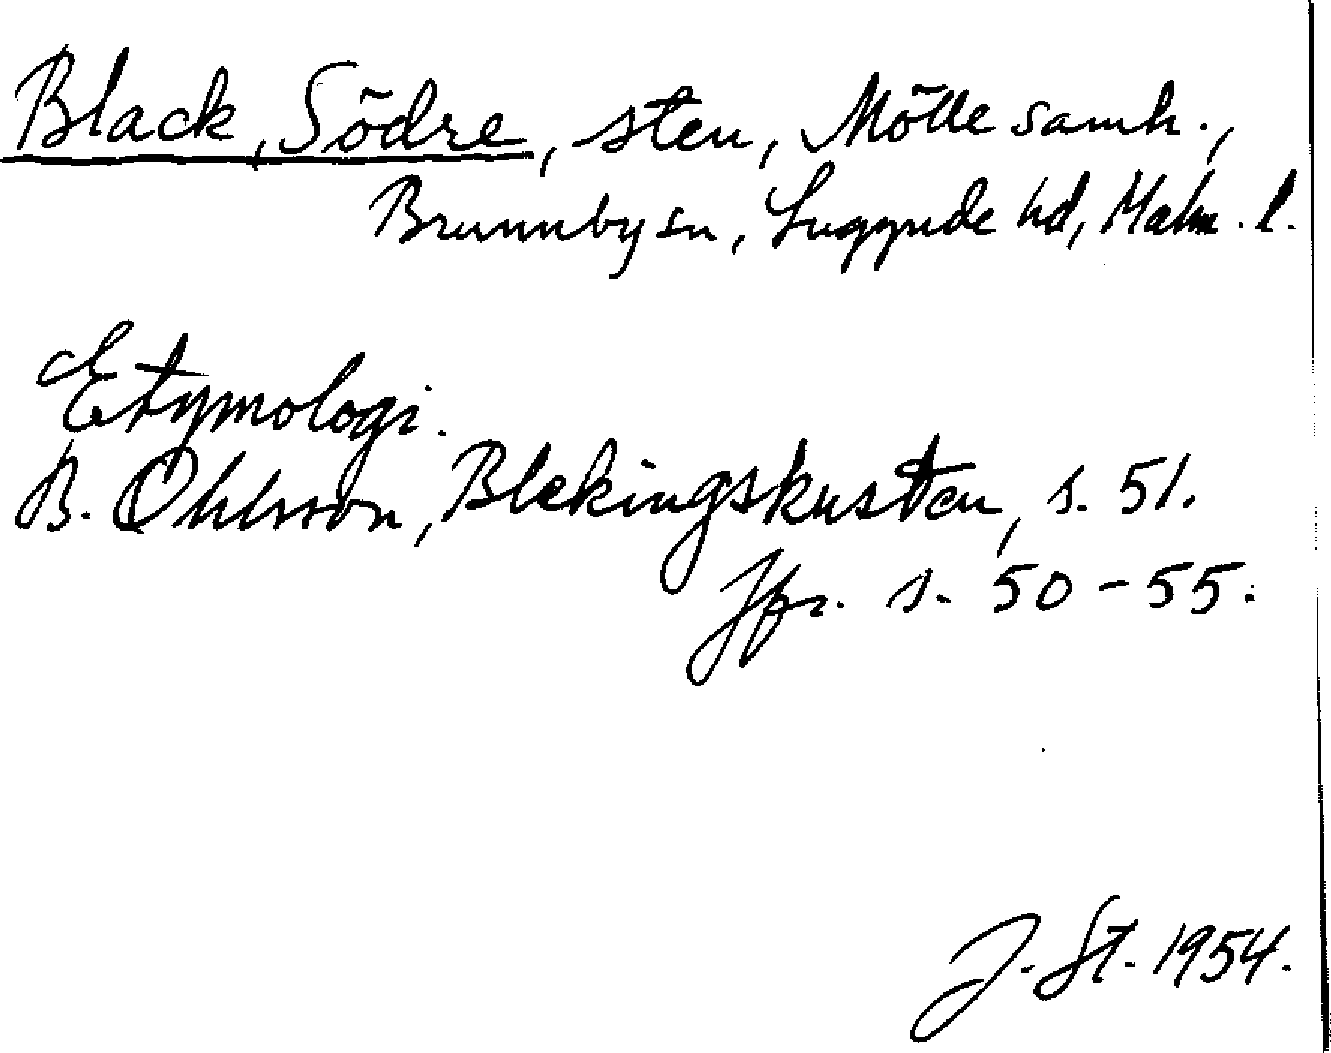 Black, Södre, sten, Mölle samh.,
Brunnby sn, Luggude hd, Malm. l.
Etymologi.
B. Ohlsson, Blekingskusten, s. 51.
Jfr. s. 50-55.
J. St. 1954.